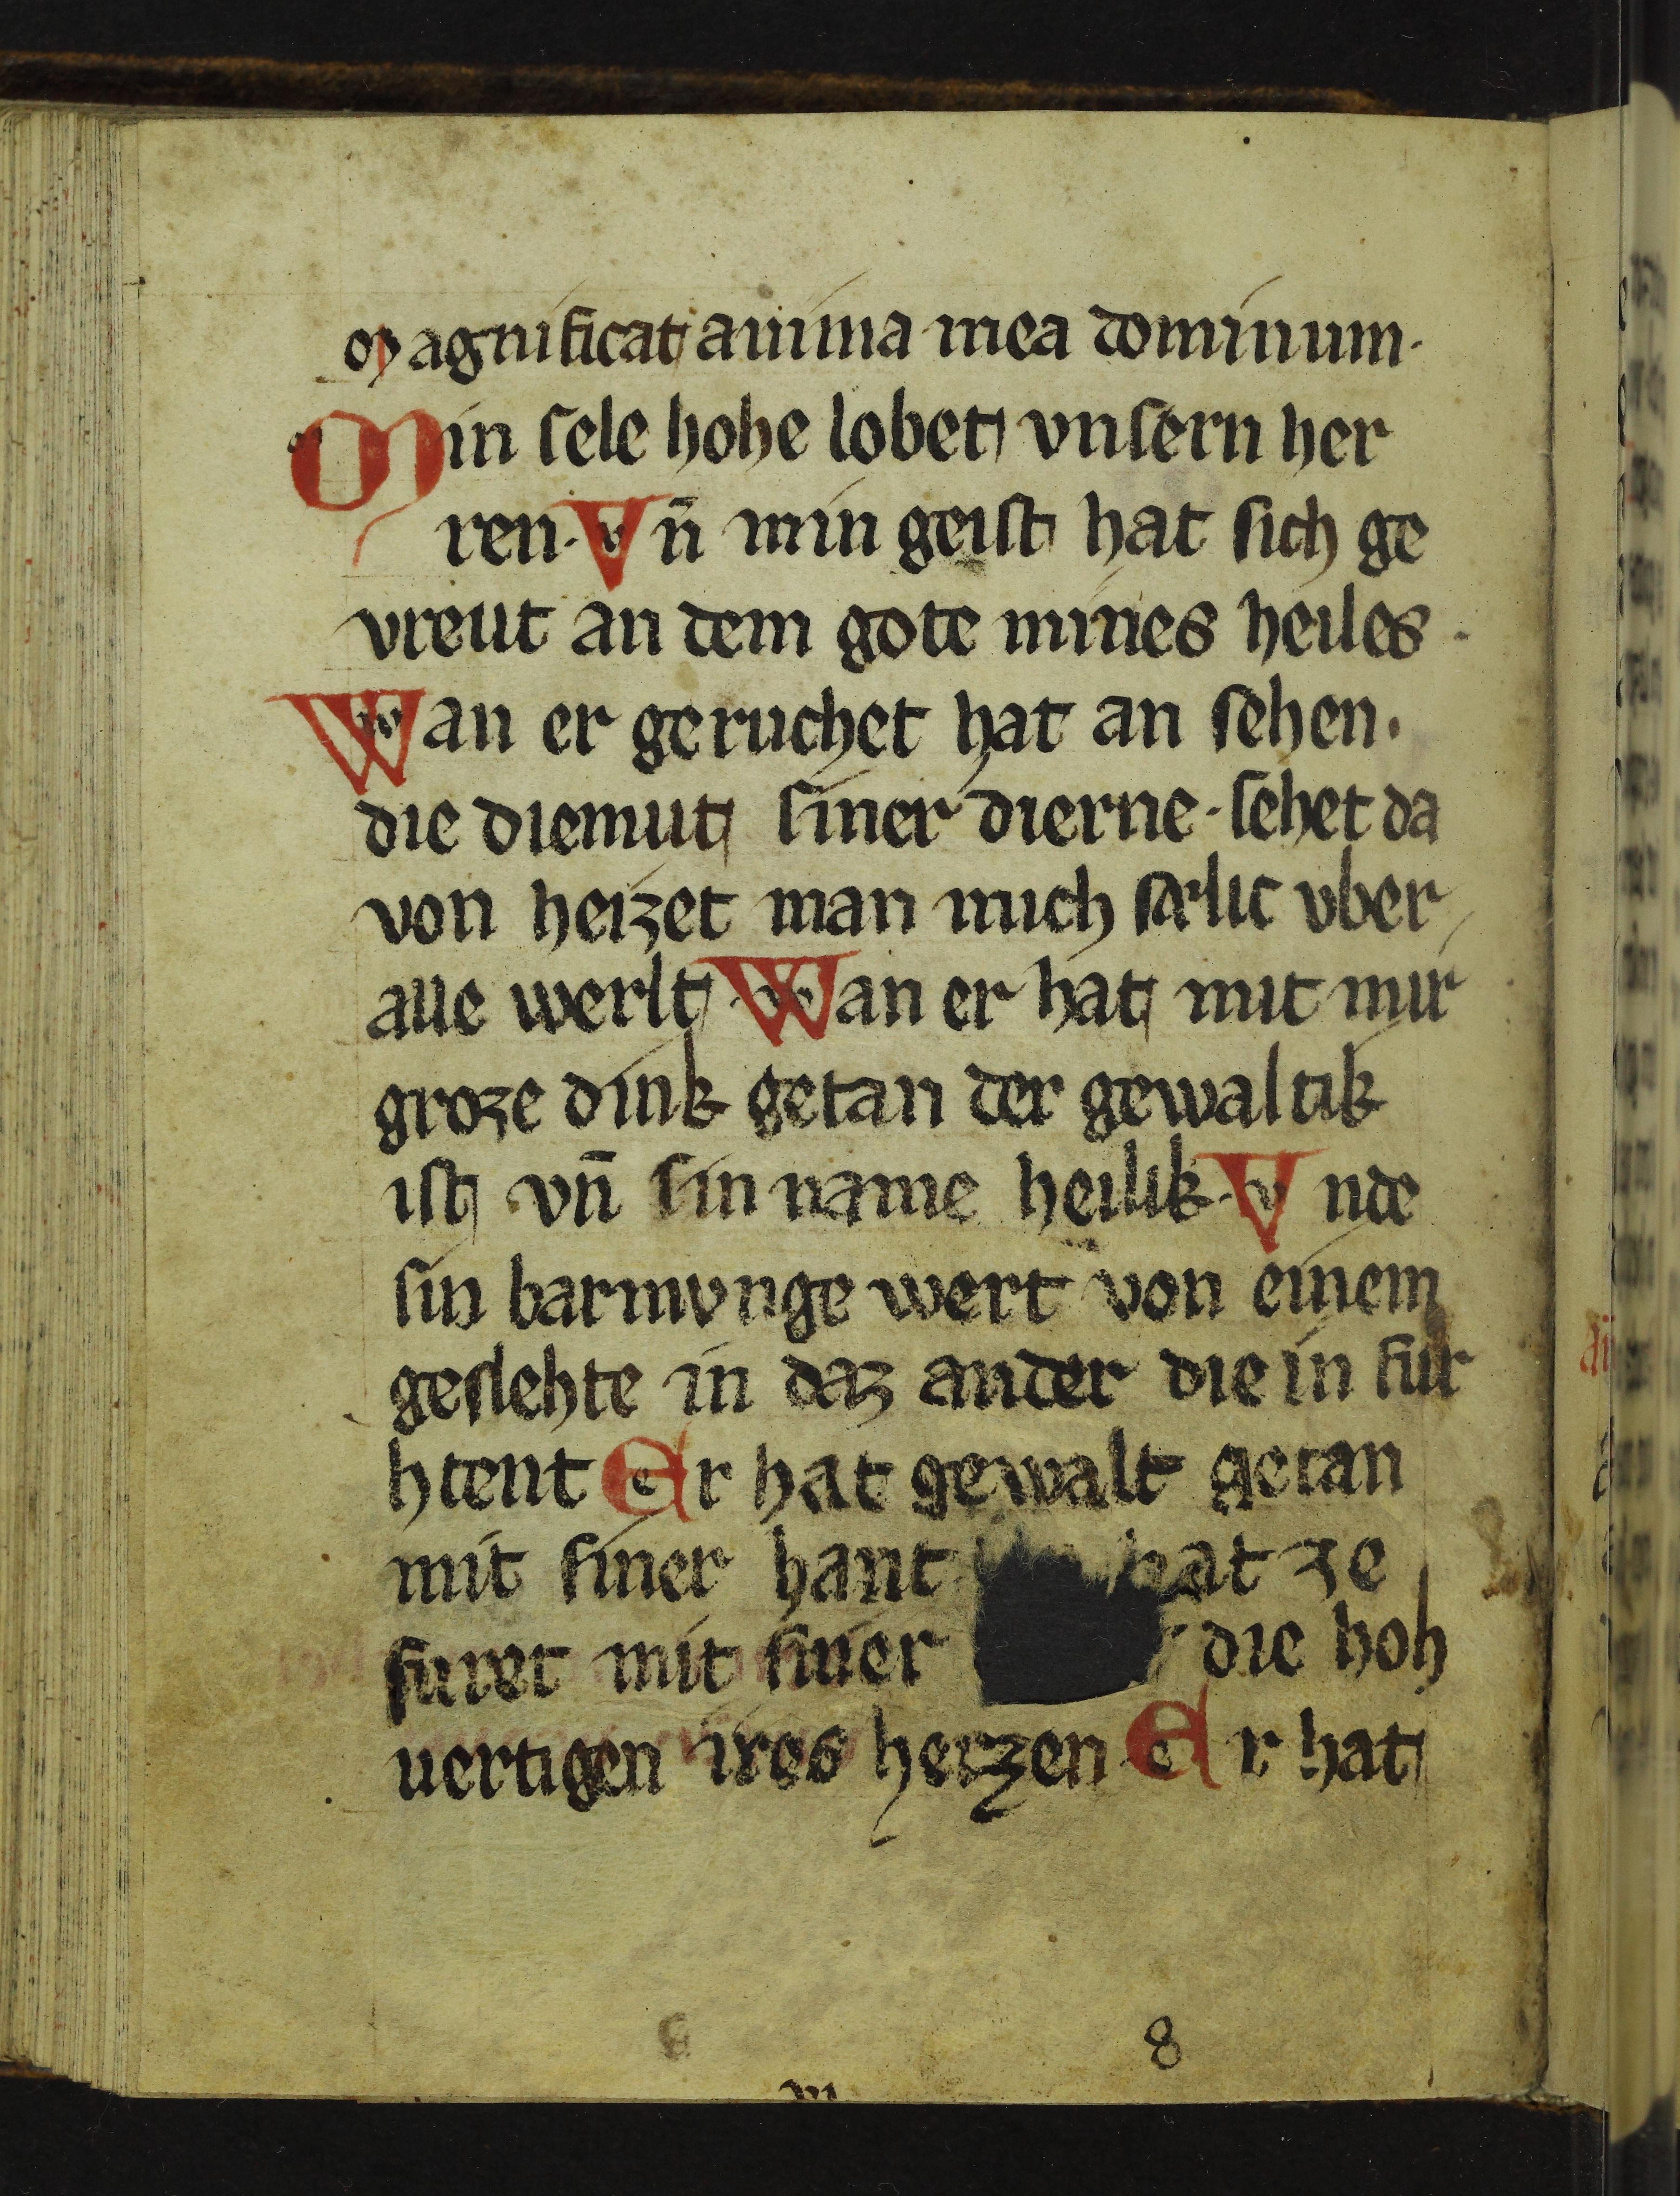 Magnificat anima mea dominum·
Min sele hohe lobet vnsern her
ren· Vn̄ min geist hat sich ge
vreut an dem gote mines heiles·
Wan er geruchet hat an sehen·
die diemut siner dierne· sehet da
von heizet man mich sælic vber
alle werlt· Wan er hat mit mir
groze dink getan der gewaltik
ist vn̄ sin name heilik· Vnde
sin barmvnge wert von einem
geslehte in daz ander die in fur
htent Er hat gewalt getan
mit siner hant hat ze
furet mit siner die hoh
uertigen ires herzen· Er hat
8